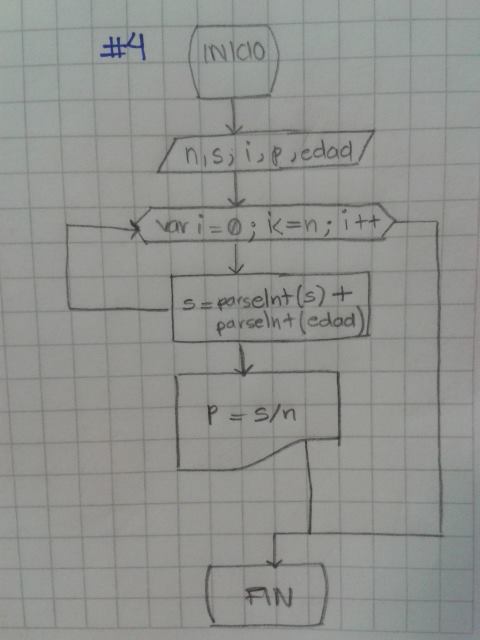 #4
INICIO
n,s; i, p, edad
var i=0; i<=n; i++
s=parseInt(s)+
parseInt(edad)
P = s/n
FIN